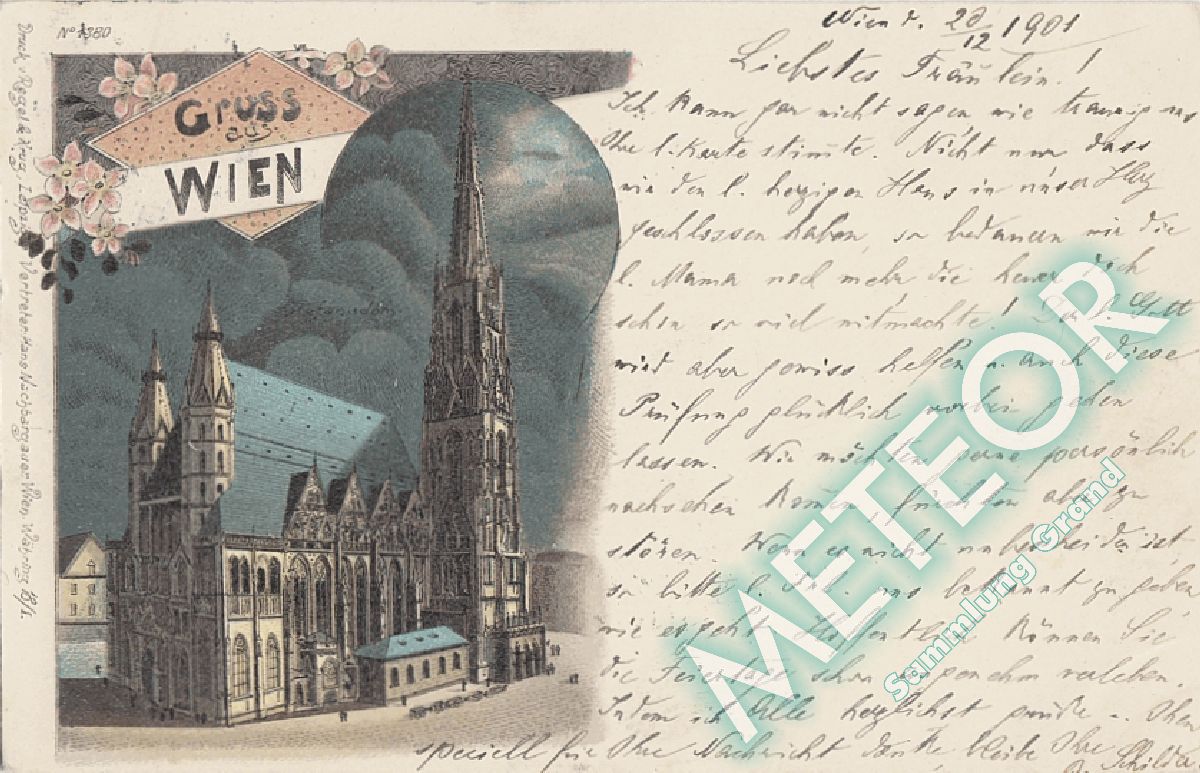 No 4380
Gruss
aus
WIEN
Stefansdom
Druck Regel & Krug, Leipzig. Vertreter: Hans Nachbargauer Wien, Währing 18/1.
Wien d. 20/12 1901
Liebstes Fräulein!
Ich kann gar nicht sagen wie traurig uns
Ihre l. Karte stimmte. Nicht nur dass
wir den l. herzigen Hans in unser Herz
geschlossen haben, so bedauern wir die
l. Mama noch mehr die heuer doch
schon so viel mitmachte! Der l. Gott
wird aber gewiss helfen u. auch diese
Prüfung glücklich vorbei gehen
lassen. Wir möchten gerne persönlich
nachsehen kommen, fürchten aber zu
stören. Wenn es nicht unbescheiden ist,
so bitte l. Frl. uns bekannt zu geben,
wie es geht. Hoffentlich können Sie
die Feiertage schon angenehm verleben.
Indem ich Alle herzlichst grüße Ihnen
speciell für Ihre Nachricht danke, bleibe Ihre
Schilder
METEOR
Sammlung Grand